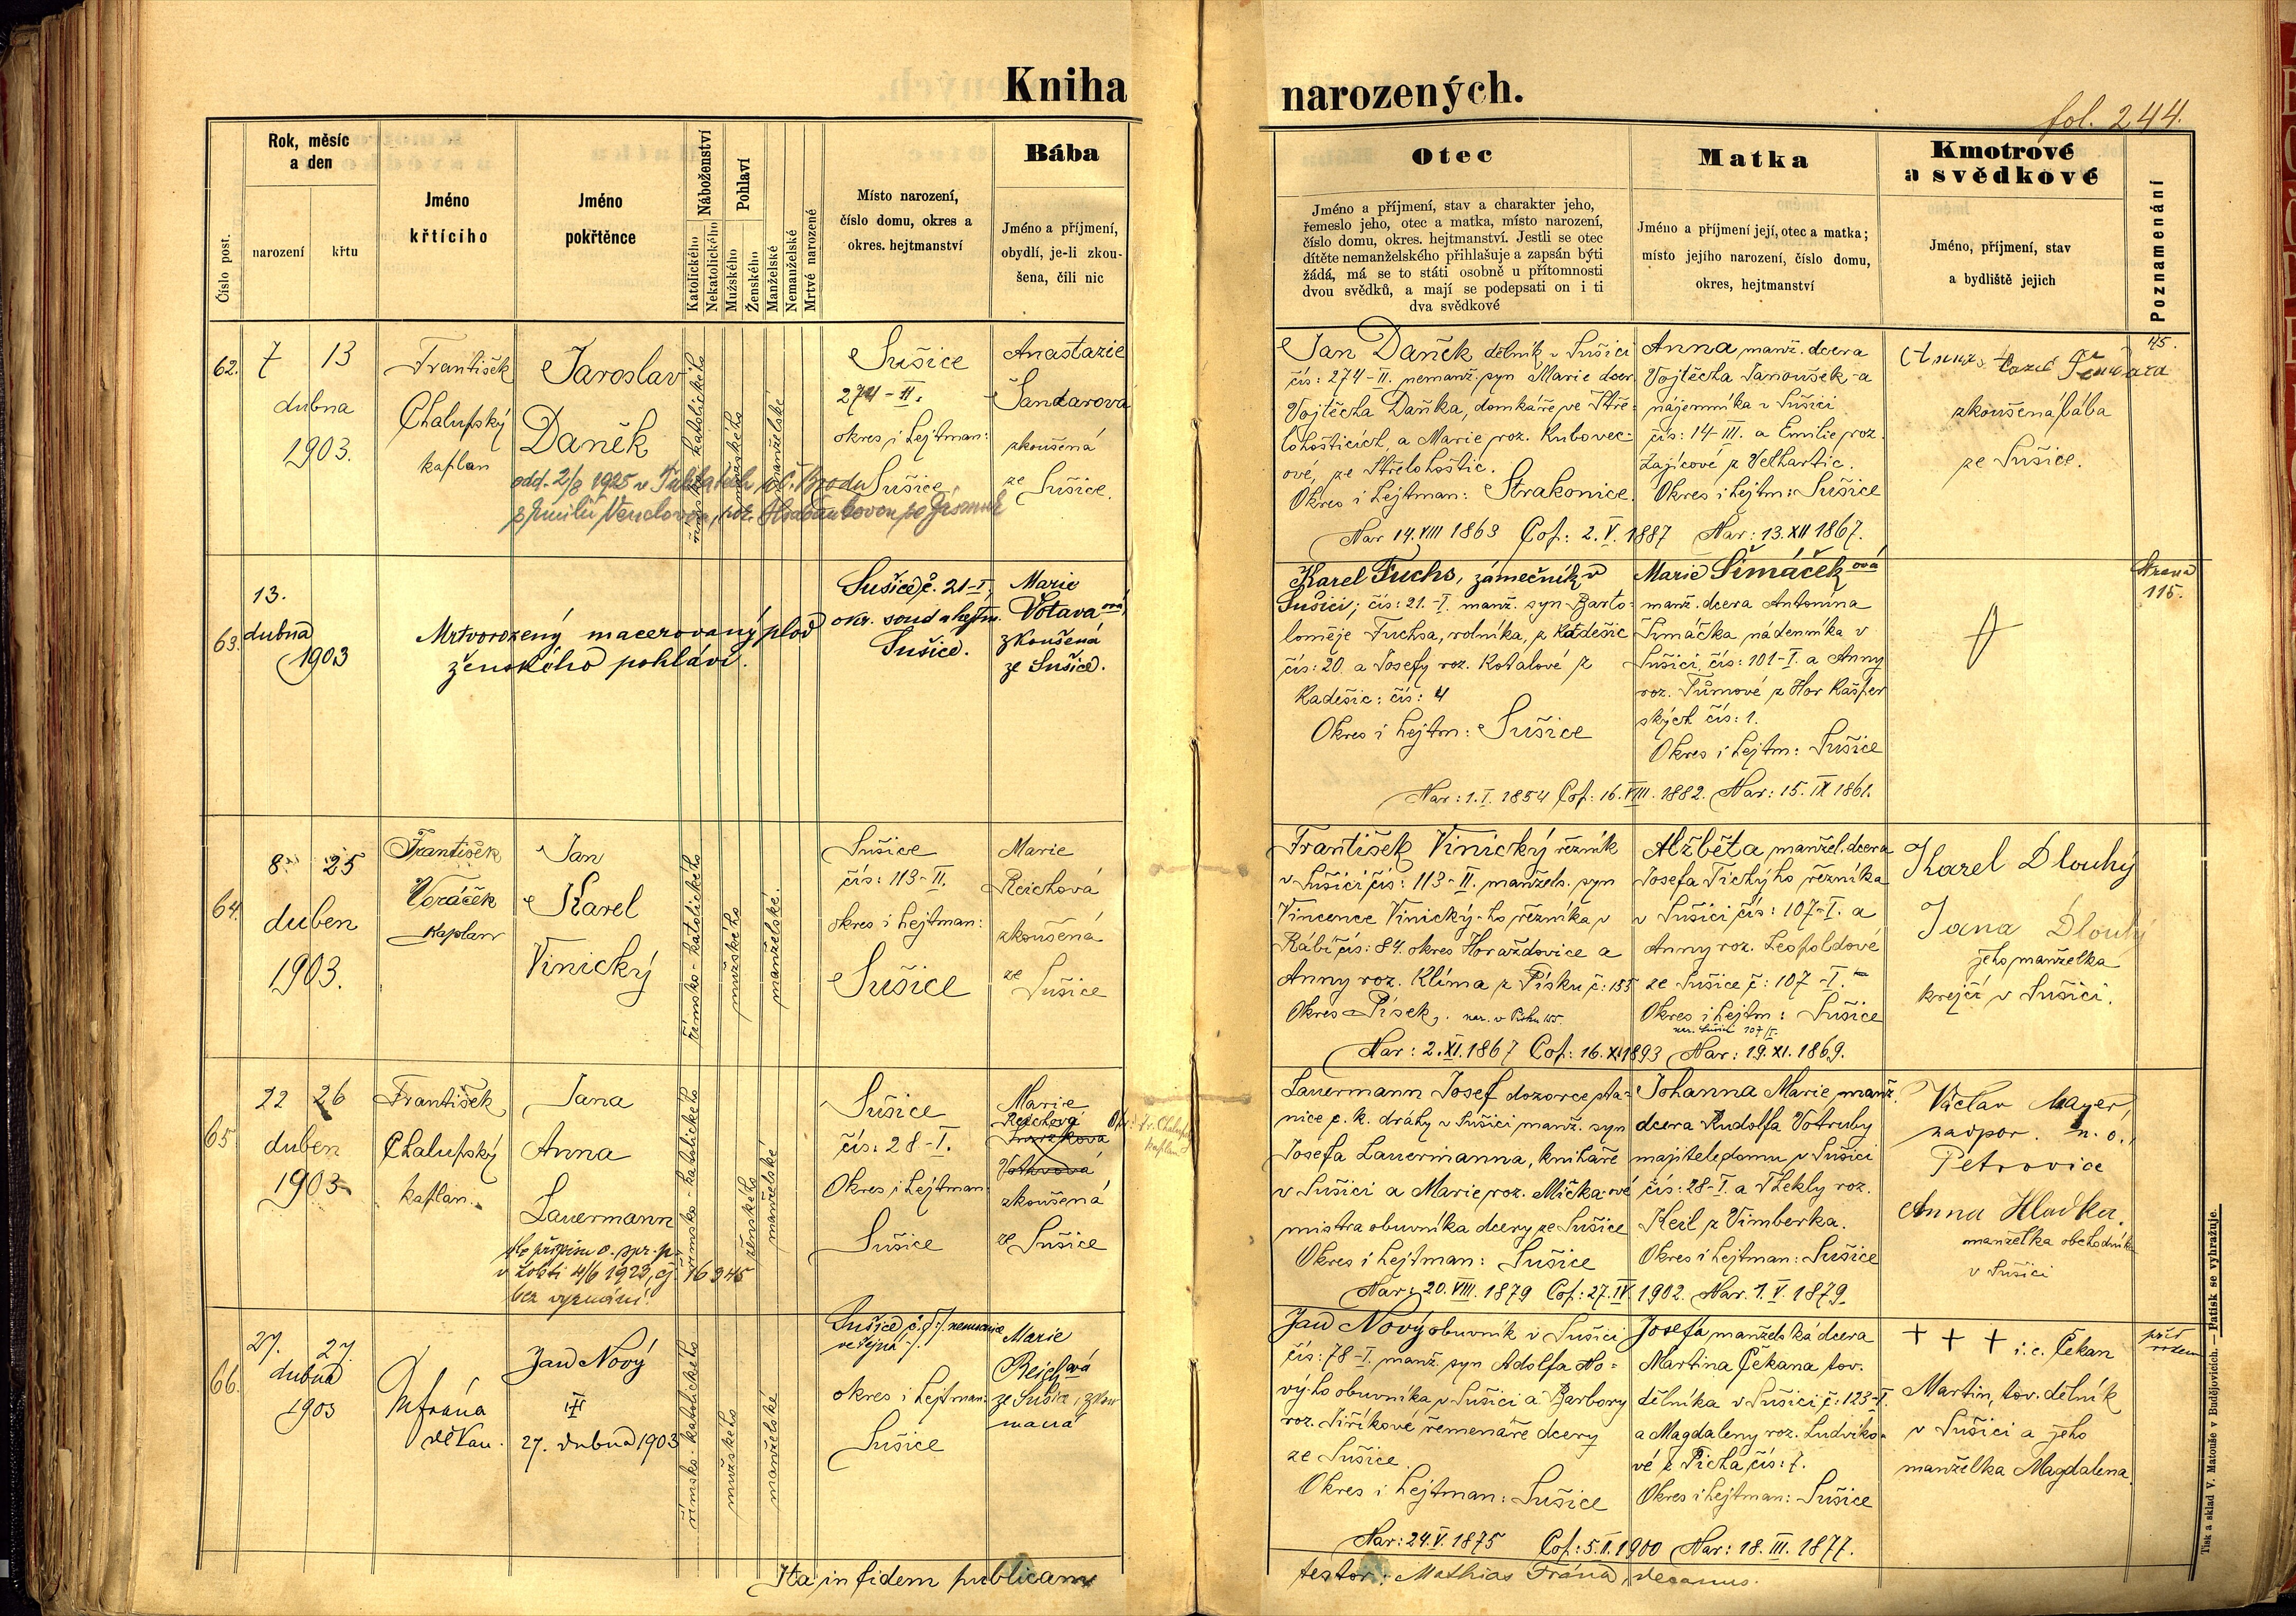 Kniha narozených.
fol. 244.
Číslo post.
Rok, měsíc
a den
narození
křtu
Jméno
křtícího
Jméno
pokřtěnce
Náboženství
Katolického
Nekatolického
Pohlaví
Mužského
Ženského
Manželské
Nemanželské
Mrtvé narozené
Místo narození,
číslo domu, okres a
okres. hejtmanství
Bába
Jméno a příjmení,
obydlí, je-li zkou-
šena, čili nic
Otec
Jméno a příjmení, stav a charakter jeho,
řemeslo jeho, otec a matka, místo narození,
číslo domu, okres. hejtmanství. Jestli se otec
dítěte nemanželského přihlašuje a zapsán býti
žádá, má se to státi osobně u přítomnosti
dvou svědků, a mají se podepsati on i ti
dva svědkové
Matka
Jméno a příjmení její, otec a matka;
místo jejího narození, číslo domu,
okres, hejtmanství
Kmotrové
a svědkové
Jméno, příjmení, stav
a bydliště jejich
Poznamenání
62.
7 13
dubna
1903.
František
Chalupský
kaplan
Jaroslav
Daněk
odd. 2/8 1925 v
římsko katolického
mužského
manželské
Sušice
274-II.
okres i hejtman:
Sušice
Anastazie
Šandarová
zkoušená
ze Sušice.
Jan Daněk dělník v Sušici
čís: 274-II. nemanž. syn Marie dcer
Vojtěcha Daňka, domkáře ve Stře-
lohošticích a Marie roz. Kubovec-
ové, ze Střelohoštic.
Okres i hejtman: Strakonice.
Anna manž. dcera
Vojtěcha Janoušek-a
nájemníka v Sušici
čís: 14-III. a Emilie roz.
Zajícové z Velhartic.
Okres i hejtm: Sušice
Nar 14. VIII 1863 Cop: 2. V. 1887 Nar: 13. XII 1867.
zkoušená bába
ze Sušice.
63.
13.
dubna
1903
Mrtvorozený macerovaný plod
ženského pohlaví.
Sušice č. 21-I,
okr. soud a hejtm.
Sušice.
Marie
Votavaová,
zkoušená
ze Sušice.
Karel Fuchs, zámečník v
Sušici; čís: 21.-I. manž. syn Barto-
loměje Fuchsa, rolníka, z Kadešic
čís: 20. a Josefy roz. Kotalové z
Kadešic: čís: 4
Okres i hejtm: Sušice
Marie Šimáčeková
manž. dcera Antonína
Šimáčka nádenníka v
Sušici, čís: 101-I. a Anny
roz. Tůmové z Hor Kašper
ských čís: 1.
Okres i hejtm: Sušice
Nar: 1. I. 1854 Cop: 16. VIII. 1882. Nar: 15. IX 1861.
Strana
115.
64.
8. 25
duben
1903.
František
Voráček
Kaplan
Jan
Karel
Vinický
římsko-katolického
mužského
manželské.
Sušice
čís: 113-II.
okres i hejtman:
Sušice
Marie
Reichová
zkoušená
ze Sušice
František Vinický řezník
v Sušici čís: 113-II. manžels. syn
Vincence Vinický-ho řezníka, v
Rábí čís: 84. okres Horažďovice a
Anny roz. Klíma z Písku č: 155
Okres Písek,
Alžběta manžel. dcera
Josefa Tichýho řezníka
v Sušici čís: 107-I. a
Anny roz. Leopoldové
ze Sušice č: 107-I.
Okres i hejtm: Sušice
nar. Sušice 107/I.
Nar: 2. XI. 1867 Cop: 16. XI 1893 Nar: 19. XI. 1869.
Karel Dlouhý
Jana Dlouhý
jeho manželka
krejčí v Sušici.
65
22 26
duben
1903
František
Chalupský
kaplan.
Jana
Anna
Lauermann
dle přípisu o. spr. p.
4/6 1923, čj. 16 345
bez vyznání.
římsko-katolického
ženského
manželské
Sušice
čís: 28-I.
Okres i hejtman:
Sušice
Marie
Reichová
Votavová
zkoušená
ze Sušice
Lauermann Josef dozorce sta-
nice c. k. dráhy v Sušici manž. syn
Josefa Lauermanna, knihaře
v Sušici a Marie roz. Mičkarové
mistra obuvníka dcery ze Sušice
Okres i hejtman: Sušice
Johanna Marie manž.
dcera Rudolfa Votruby
majitele domu v Sušici
čís: 28-I. a Thekly roz.
Keil z Vimberka.
Okres i hejtman: Sušice
Nar: 20. VIII. 1879 Cop: 27. IV. 1902. Nar. 1. V. 1879.
Václav Mayer,
nadpor. n. o.,
Petrovice
Anna Hladka.
manželka obchodníka
v Sušici
66.
27. 27.
dubna
1903
M Frána
děkan.
Jan Nový
27. dubna 1903
římsko. katolického
mužského
manželské
Sušice č. nemocnice
veřejná
okres i hejtman:
Sušice
Marie
Reichová
ze Sušice, zkou
maná
Jan Nový obuvník v Sušici
čís: 78-I. manž. syn Adolfa No-
vý-ho obuvníka v Sušici a Barbory
roz. Jiříkové řemenáře dcery
ze Sušice.
Okres i hejtman: Sušice
Josefa manželská dcera
Martina Čekana tov.
dělníka v Sušici č: 123-I.
a Magdaleny roz. Ludvíko-
vé z Ticha čís: 7.
Okres i hejtman: Sušice
Nar: 24. V. 1875 Cop: 5. II. 1900 Nar: 18. III. 1877.
+ + + i. e. Čekan
Martin, tov. dělník
v Sušici a jeho
manželka Magdalena.
Ita in fidem publicam
testor: Mathias Frána, decanus.
Tisk a sklad V. Matouše v Budějovicích. — Patisk se vyhražuje.